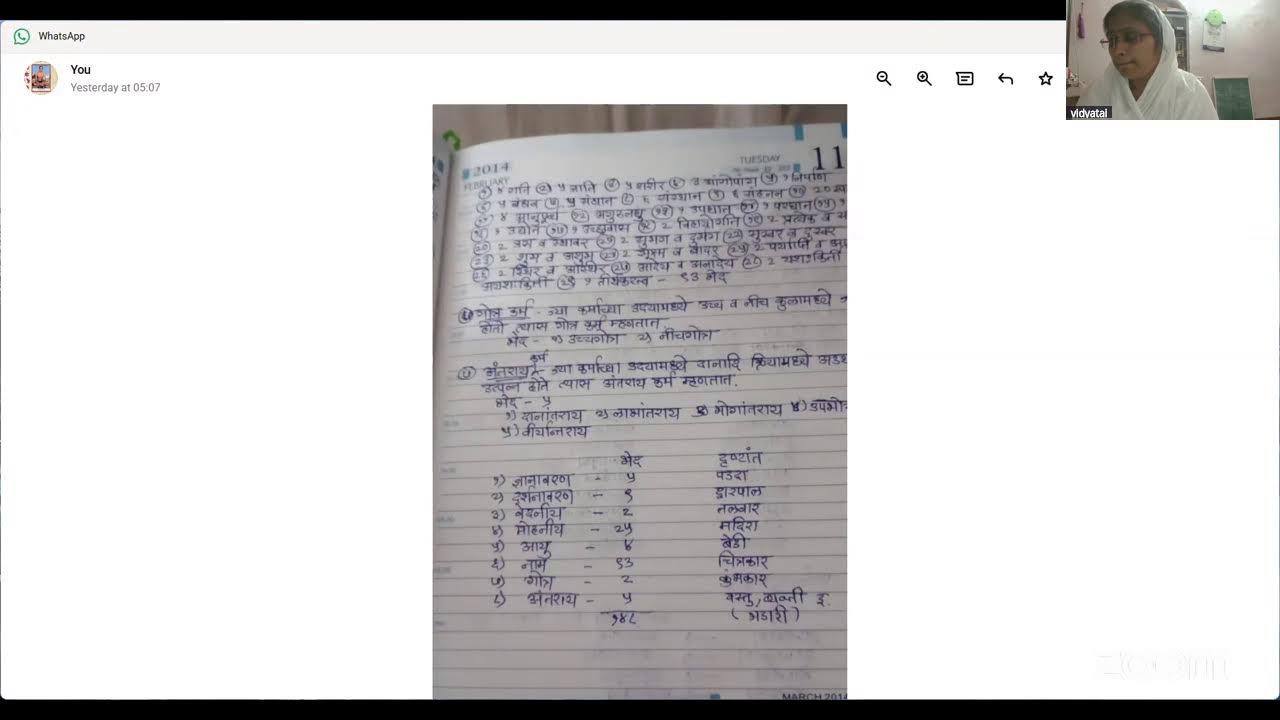 WhatsApp
You
Yesterday at 05:07
vidyatai
2014
FEBRUARY
TUESDAY
11
४ गति (२) ५ जाति ५ शरीर ३ आंगोपांग १ निर्माण
५ बंधन ५ संघात ६ संस्थान ६ संहनन २०
४ आनुपूर्व्य अगुरुलघु १ उपघात १ परघात
१ उद्योत १ उच्छ्वास २ विहायोगति २ प्रत्येक व
२ त्रस व स्थावर २ सुभग व दुर्भग सुस्वर व दुस्वर
२ शुभ व अशुभ २ सूक्ष्म व बादर २ पर्याप्ति व
२ स्थिर व अस्थिर आदेय व अनादेय २ यशःकिर्ती
अयशःकिर्ती १ तीर्थकरत्व - ९३ भेद
गोत्र कर्म - ज्या कर्माच्या उदयामध्ये उच्च व नीच कुळामध्ये
होतो त्यास गोत्र कर्म म्हणतात.
भेद - १) उच्चगोत्र २) नीचगोत्र
कर्म
अंतराय - ज्या कर्माच्या उदयामध्ये दानादि क्रियामध्ये
उत्पन्न होते त्यास अंतराय कर्म म्हणतात.
भेद - ५
१) दानांतराय २) लाभांतराय ३) भोगांतराय ४) उपभो
५) वीर्यान्तराय
भेद दृष्टांत
१) ज्ञानावरण - ५ पडदा
२) दर्शनावरण - ९ द्वारपाल
३) वेदनीय - २ तलवार
४) मोहनीय - २५ मदिरा
५) आयु - ४ बेडी
६) नाम - ९३ चित्रकार
७) गोत्र - २ कुंभकार
८) अंतराय - ५ वस्तु, व्यक्ती इ.
१४८ (भंडारी)
MARCH 2014
zoom